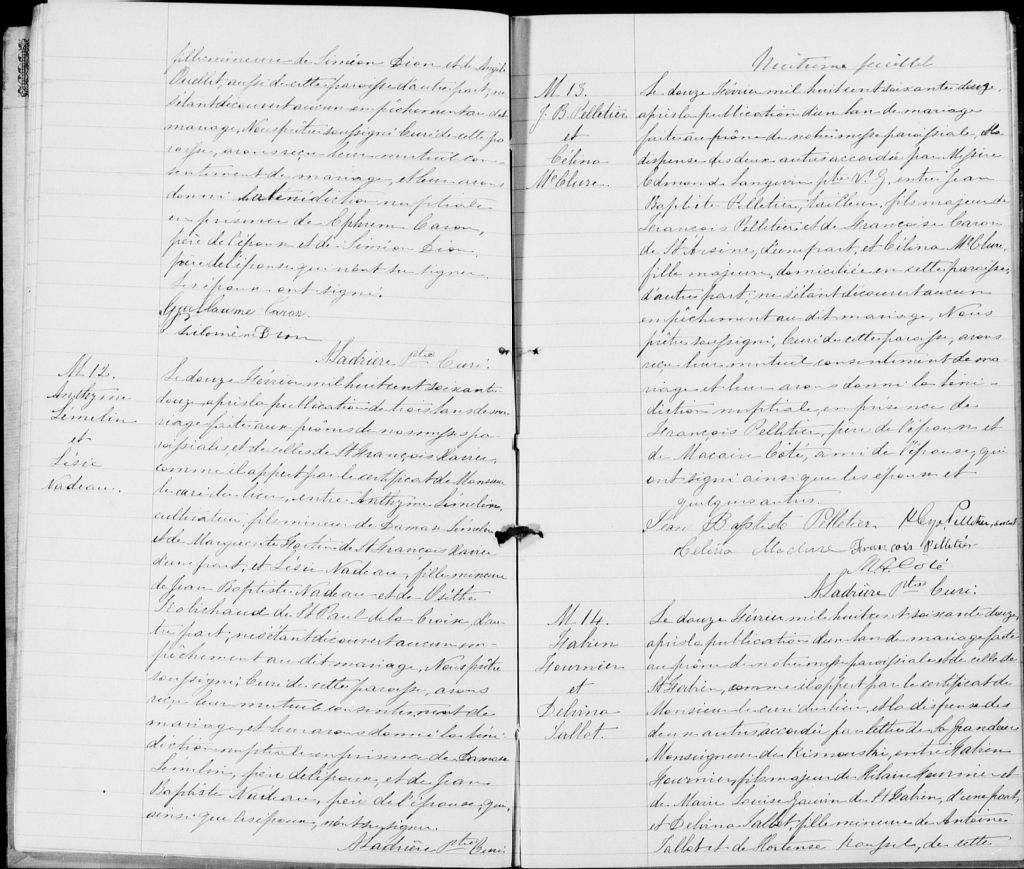 fille mineure de Siméon Dion et de Angèle
Ouellet, aussi de cette paroisse d'autre part; ne
s'étant découvert aucun empêchement au dit
mariage, Nous prêtre soussigné Curé de cette pa
roisse, avons reçu leur mutuel con-
sentement de mariage, et leur avons
donné la bénédiction nuptiale
en présence de Ephrem Caron,
père de l'époux et de Siméon Dion
père de l'épouse, qui n'ont su signer.
Les époux ont signé.
Guillaume Caron
Philomène Dion
Ladrière Ptre Curé.
M 12.
Anthyme
Lémelin
et
Lésie
Nadeau.
Le douze Février mil huit cent soixante
douze, après la publication de trois bans de ma
riage faite aux prônes de nos messes pa
roissiales et de celles de St François Xavier,
comme il appert par le certificat de Monsieur
le curé du lieu, entre Anthyme Lémelin,
cultivateur, fils mineur de Damase Lémelin
et de Marguerite Fortin de St François Xavier
d'une part; et Lésie Nadeau, fille mineure
de Jean Baptiste Nadeau et de Osithe
Robichaud de St Paul de la Croix, d'au
tre part; ne s'étant découvert aucun em-
pêchement au dit mariage, Nous prêtre
soussigné, Curé de cette paroisse, avons
reçu leur mutuel consentement de
mariage, et leur avons donné la béné
diction nuptiale en présence de Damase
Lémelin, père de l'époux, et de Jean
Baptiste Nadeau, père de l'épouse, qui,
ainsi que les époux, n'ont su signer.
Ladrière Ptre Curé
Huitième feuillet
M 13.
J. B. Pelletier
et
Célina
McClure.
Le douze Février mil huit cent soixante douze,
après la publication d'un ban de mariage
faite au prône de notre messe paroissiale, la
dispense des deux autres accordée par Messire
Edmond Langevin ptre V. G. entre Jean
Baptiste Pelletier, tailleur, fils majeur de
François Pelletier et de Françoise Caron
de St Arsène, d'une part, et Célina McClure,
fille majeure, domiciliée en cette paroisse,
d'autre part; ne s'étant découvert aucun
empêchement au dit mariage, Nous
prêtre soussigné, Curé de cette paroisse, avons
reçu leur mutuel consentement de ma
riage et leur avons donné la béné-
diction nuptiale en présence de
François Pelletier, père de l'époux et
de Macaire Côté, ami de l'épouse, qui
ont signé ainsi que les époux et
quelques autres.
Jean Baptiste Pelletier Pelletier, avocat
Celina Maclure François Pelletier
M. Coté
Ladrière Ptre Curé.
M 14.
Gatien
Fournier
et
Delvina
Jalbert.
Le douze Février mil huit cent soixante douze,
après la publication d'un ban de mariage faite
au prône de notre messe paroissiale et de celle de
St Fabien, comme il appert par le certificat de
Monsieur le curé du lieu, et la dispense des
deux autres accordée par lettre de Sa Grandeur
Monseigneur de Rimouski, entre
Fournier, fils majeur de Hilaire Fournier et
de Marie Louise Gauvin de St Fabien, d'une part,
et Delvina Jalbert, fille mineure de Antoine
Jalbert et de Hortense Roussel, de cette